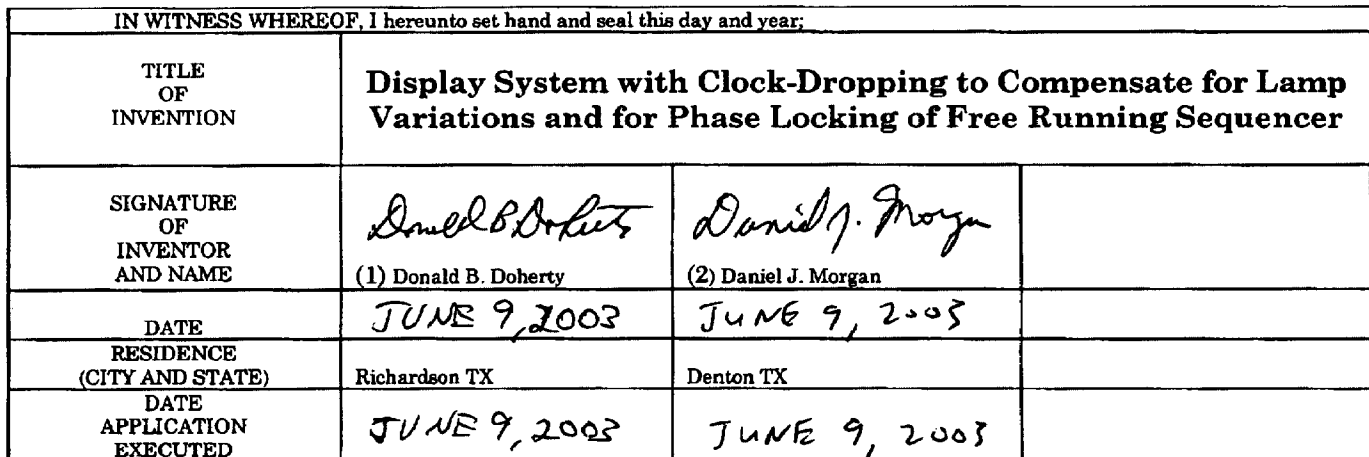 IN WITNESS WHEREOF, I hereunto set hand and seal this day and year;
TITLE
OF
INVENTION
Display System with Clock-Dropping to Compensate for Lamp
Variations and for Phase Locking of Free Running Sequencer
SIGNATURE
OF
INVENTOR
AND NAME
Donald B Doherty
Daniel J. Morgan
(1) Donald B. Doherty
(2) Daniel J. Morgan
DATE
JUNE 9, 2003
JUNE 9, 2003
RESIDENCE
(CITY AND STATE)
Richardson TX
Denton TX
DATE
APPLICATION
EXECUTED
JUNE 9, 2003
JUNE 9, 2003